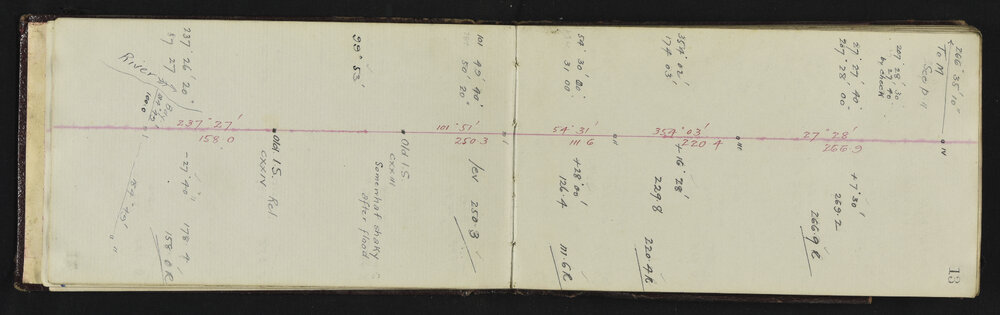 13
266° 35' 10"
To M
See p 11
IV
207 28' 30
27 40
by check
27 27 40"
207° 28' 00"
27° 28'
266.9
+7° 30'
269.2
266.9 R
III
354° 02'
174 03'
354° 03'
220.4
+16° 28'
229.8
220.4 R
II
54° 30' 00"
31 00
54° 31'
111.6
+28° 00'
126.4
111.6 R
I
101 49' 40"
50' 20"
101° 51'
250.3
lev 250.3
99° 53'
Old I.S.
CXXIII
Somewhat shaky
after flood
Old I.S. Rel
CXXIV
237° 26' 20"
57 27
237° 27'
158.0
-27° 40' 178.4
158.0 R
River
100.0